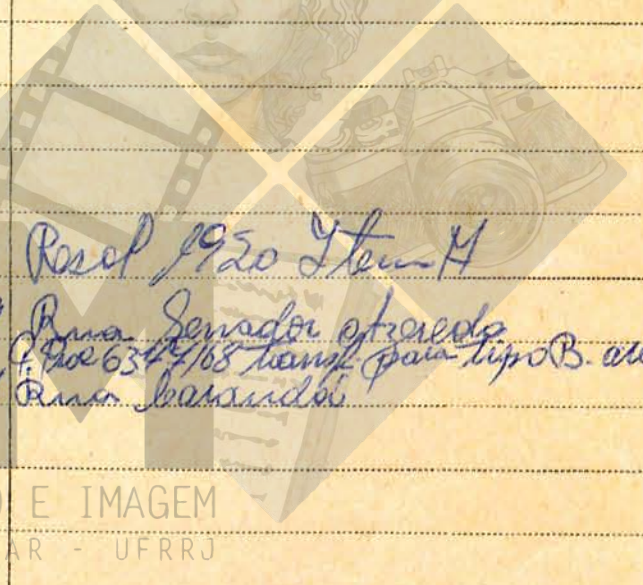 Resol 1920 Item H
Rua Senador Azeredo
Proc 6347/68 transf. para tipo B.
Rua Carandaí
O E IMAGEM
AR - UFRRJ